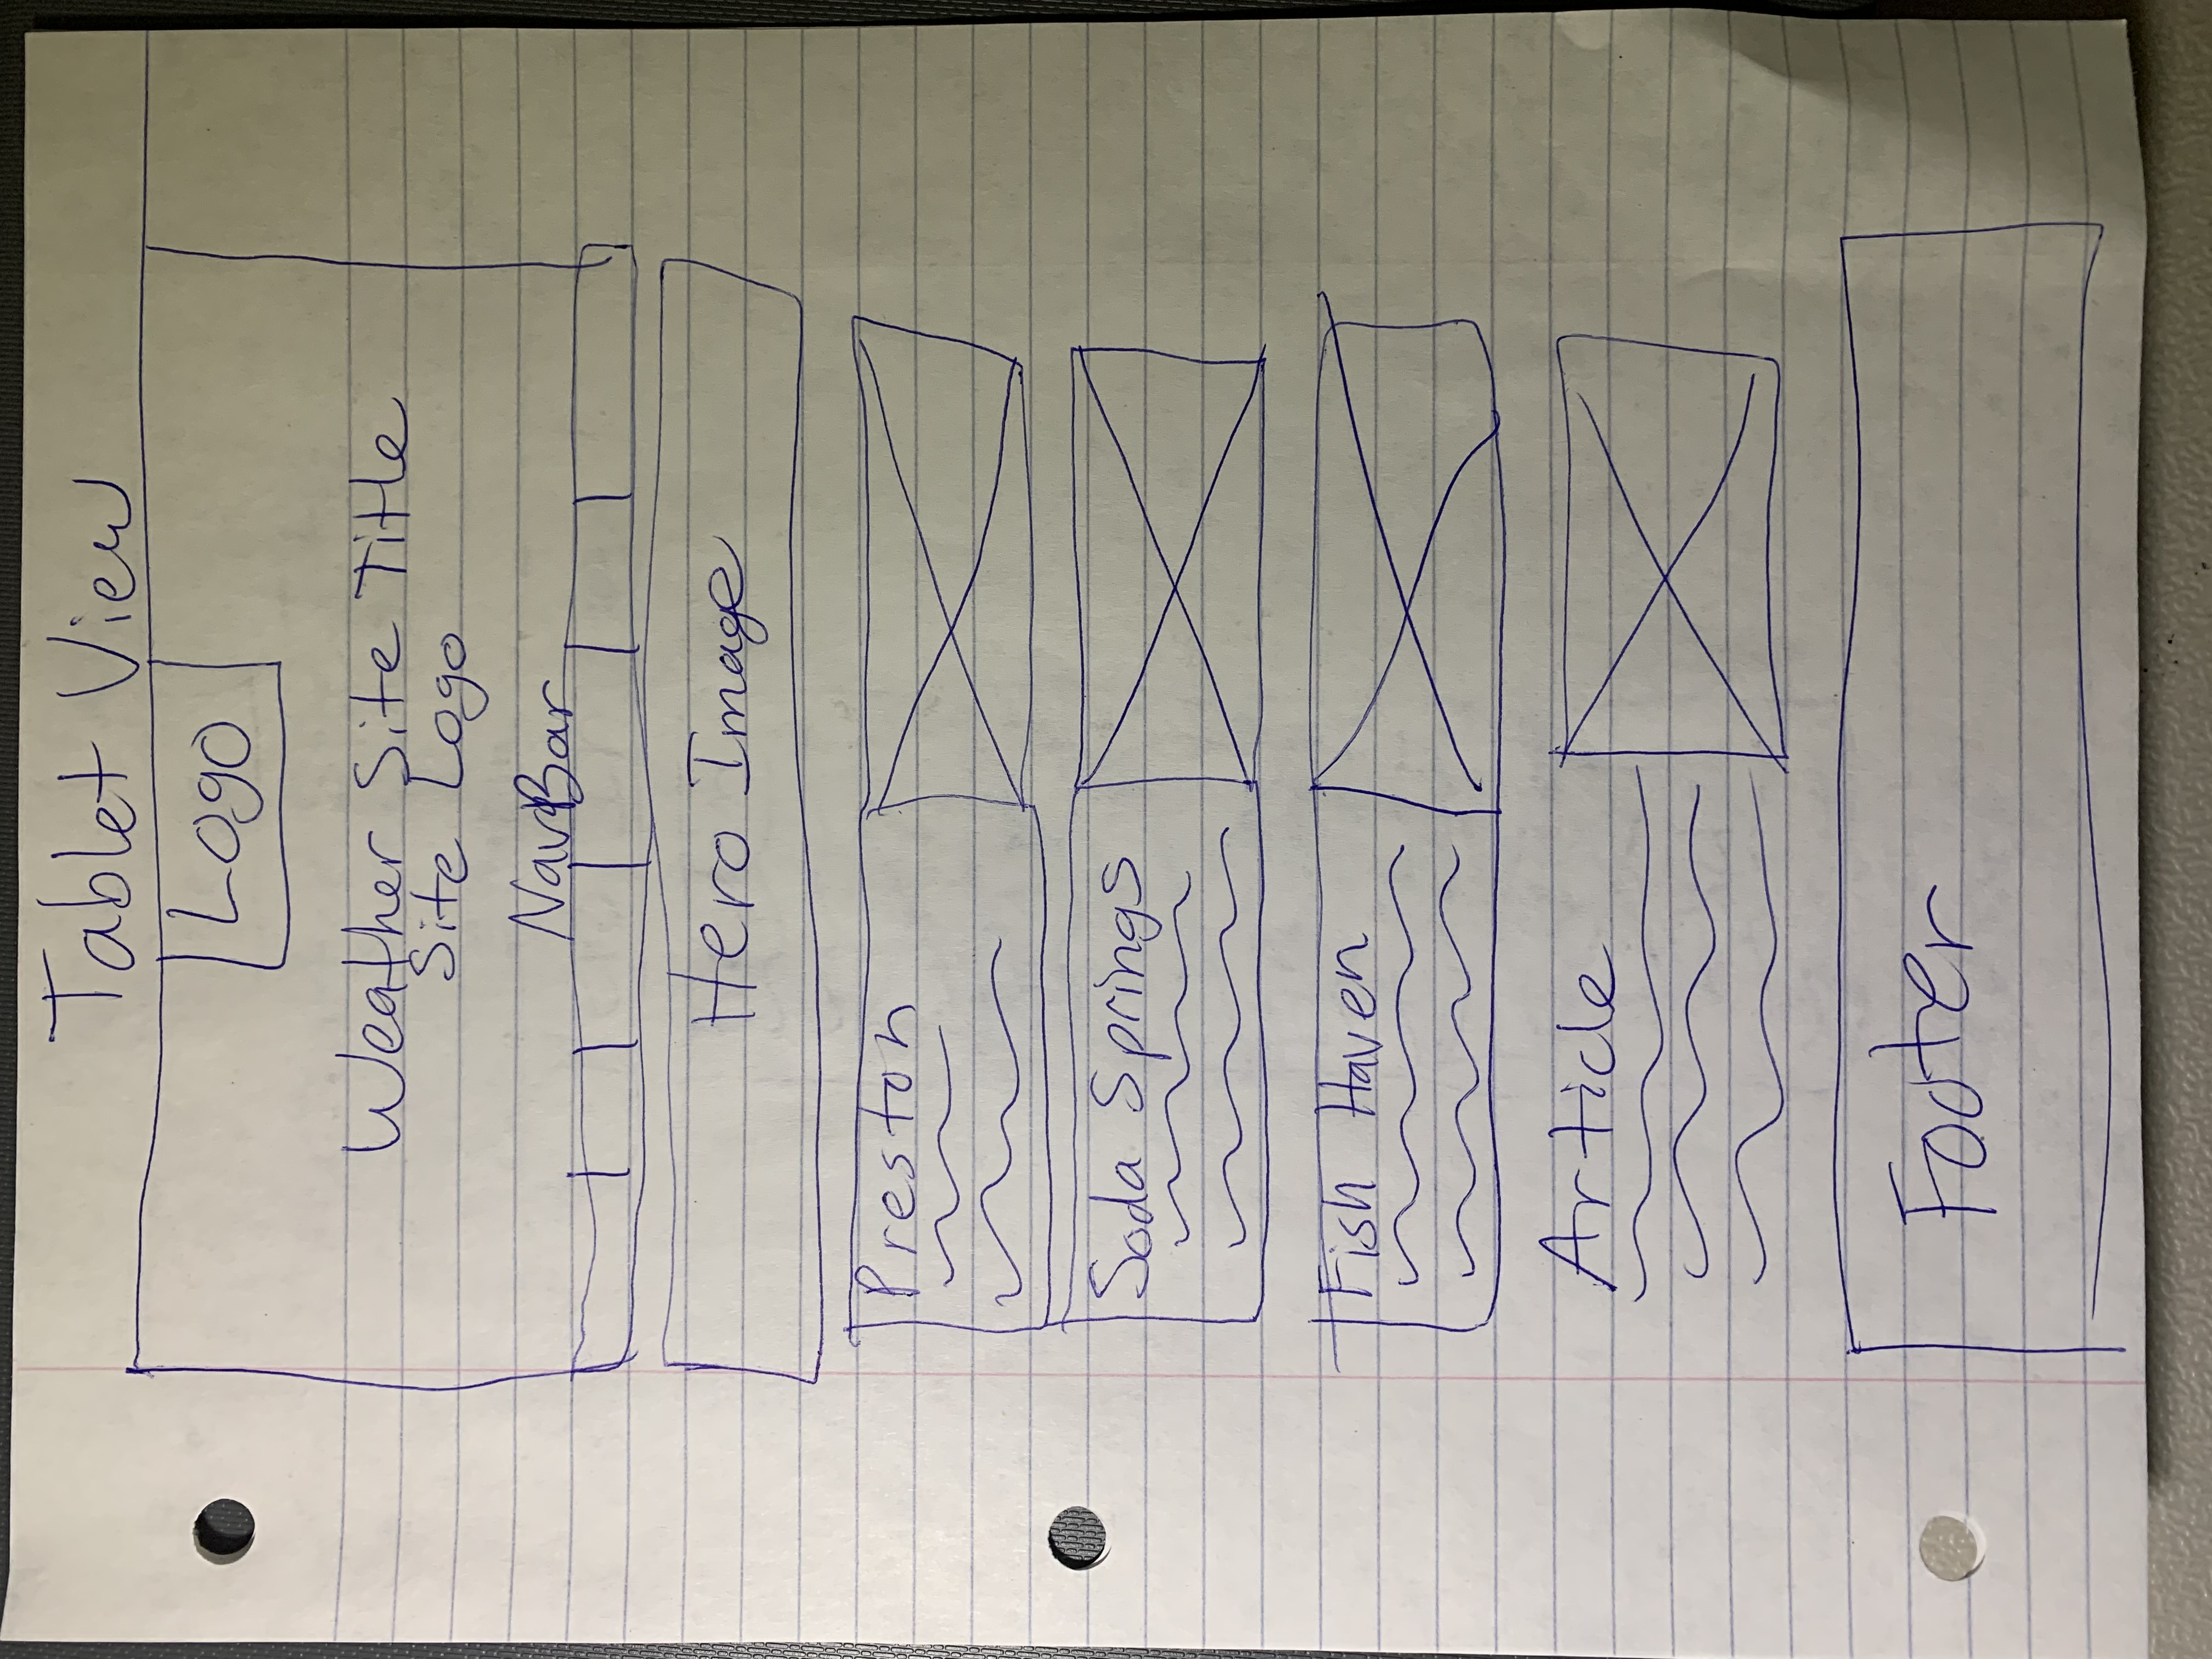 Tablet View
Logo
Weather Site Title
Site Logo
NavBar
Hero Image
Preston
Soda Springs
Fish Haven
Article
Footer